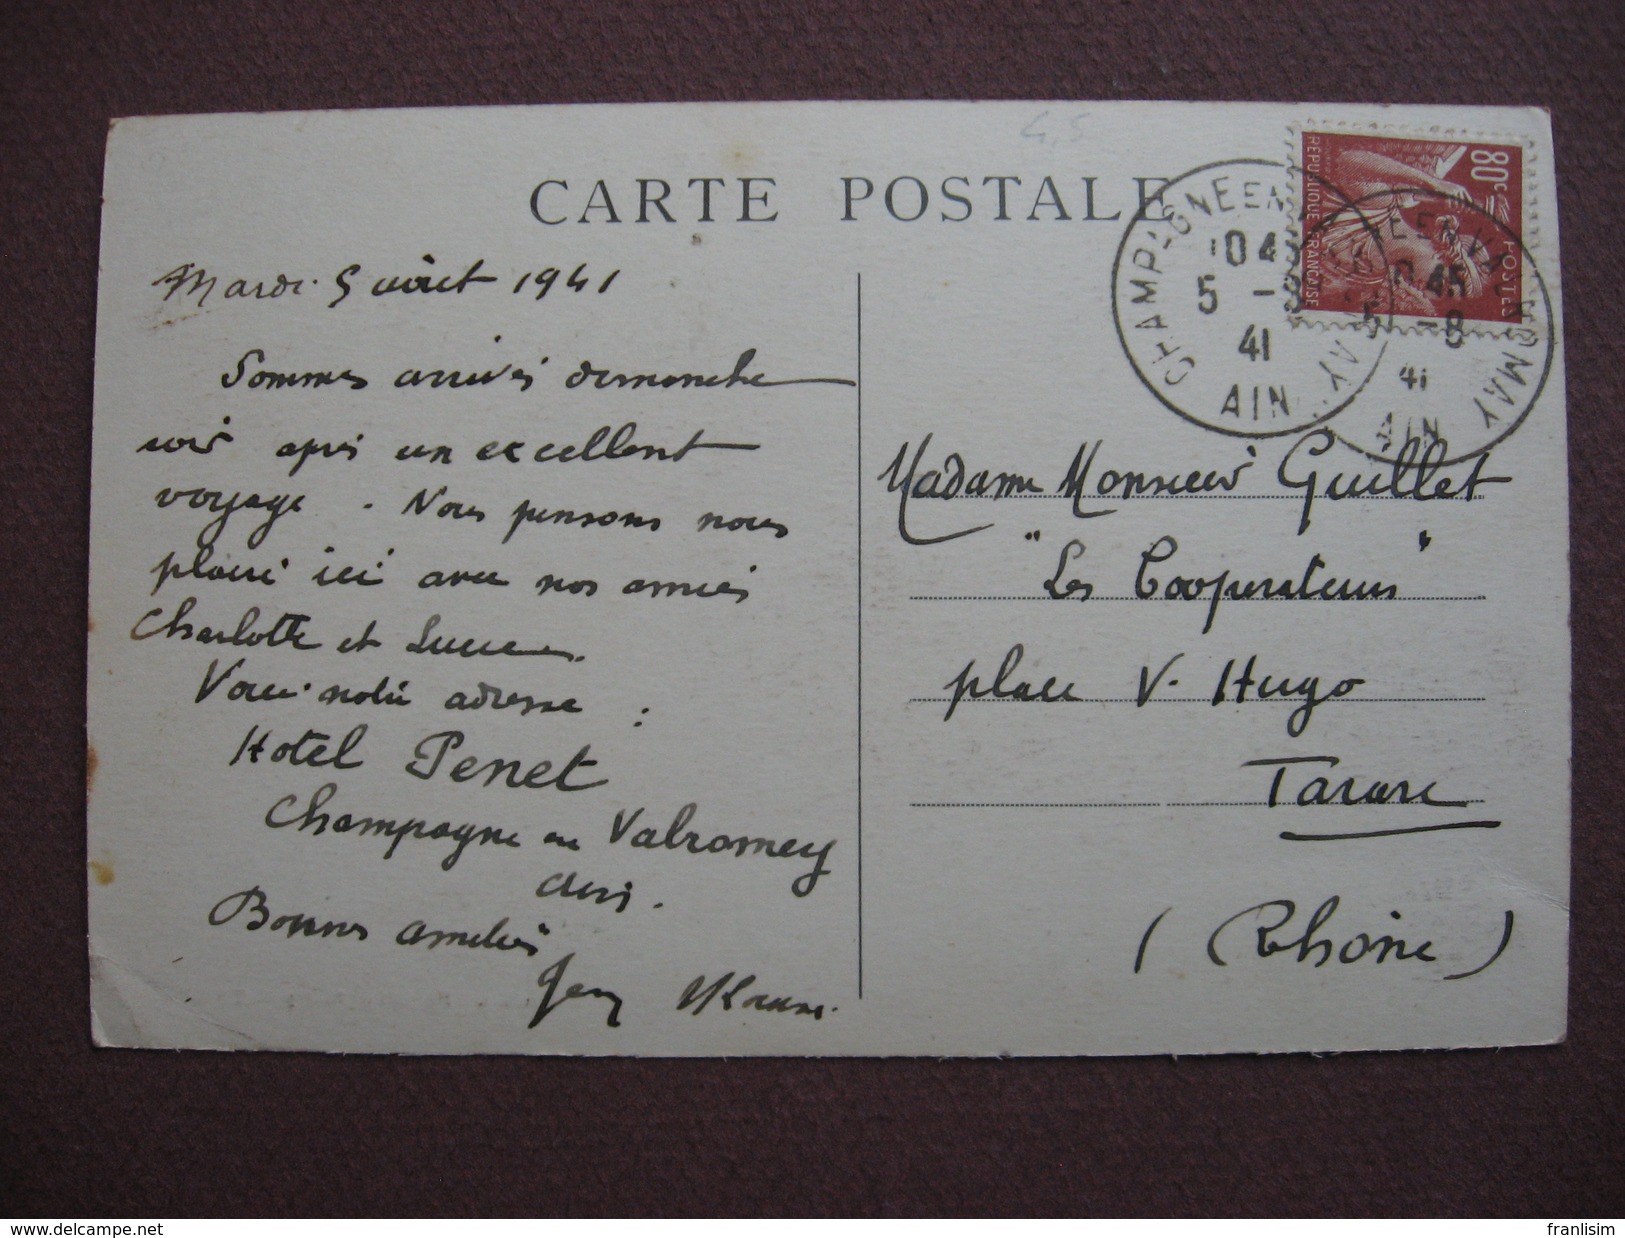 4,5
CARTE POSTALE
80c
POSTES
REPUBLIQUE FRANÇAISE
CHAMPAGNE EN VALROMAY
5 -8
41
AIN
Mardi 5 août 1941
Sommes arrivés dimanche
soir après un excellent
voyage. Nous pensons nous
plaire ici avec nos amies
Charlotte et
Voici notre adresse :
Hotel Penet
Champagne en Valromey
Ain.
Bonnes amitiés
Madame Monsieur Guillet
"Les Coopérateurs"
place V. Hugo
Tarare
(Rhône)
www.delcampe.net
franlisim